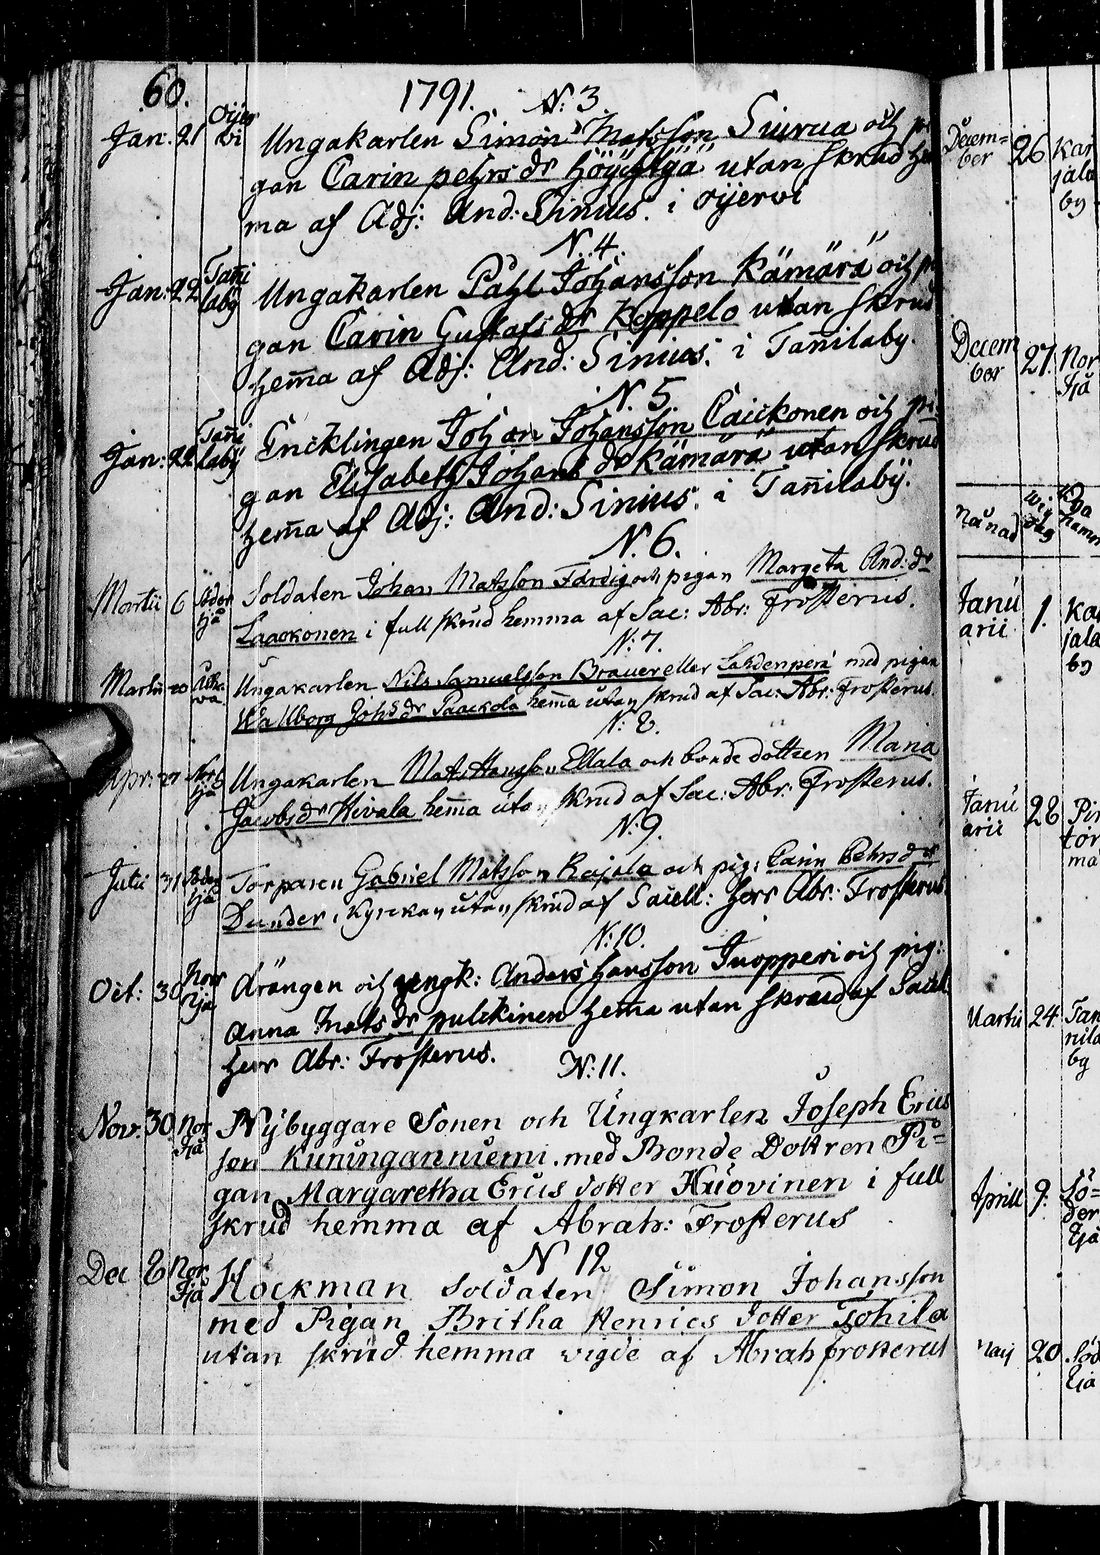 60.
1791. N: 3.
Jan: 21 Oijer
vi Ungakarlen Simon Matsson Siurua och pi
gan Carin pehrs dr Höyhtyä utan skrud hem
ma af Adj: And: Sinius. i oijervi
N. 4.
Jan: 22 Tañi
laby Ungakarlen Påhl Johansson Kämärä och pi
gan Carin Gustafs dr Koppelo utan skrud
hem̃a af Adj: And: Sinius. i Tañilaby.
N. 5.
Jan: 22 Tañi
laby Encklingen Johan Johansson Caickonen och pi
gan Elisabeth Johans dr Kämärä utan skrud
hem̃a af Adj: And: Sinius. i Tañilabÿ.
N. 6.
Martii 6 Soldaten Johan Matsson Färdig och pigan Margeta And: dr
Laackonen i full skrud hemma af Sac: Abr: Frosterus.
N: 7.
Martii 20 Ungakarlen Nils Samuelsson Brauer eller Lahdenperä med pigan
Wallborg Johs dr Paackola hem̃a utan skrud af Sac: Abr: Frosterus.
N: 8.
Apr: 27 Nor
ijå Ungakarlen Mats Hansson Ellala och bonde dottren Maria
Jacobs dr Kivala hem̃a utan skrud af Sac: Abr: Frosterus.
N: 9.
Julii 31 Söder
ijå Torparen Gabriel Matsson Rajala och pig: Carin Pehrs dr
Dunder i Kyrckan utan skrud af Sacell: Herr Abr: Frosterus
N: 10.
Oct: 30 Norr
Ijå drängen och ungk: Anders Hansson Tuopperi och pig:
Anna Mats dr pulckinen hem̃a utan skrud af Sacell
herr Abr: Frosterus.
N: 11.
Nov: 30 Nor
Ijå Nybyggare Sonen och Ungkarlen Joseph Erics
son Kuninganniemi med Bonde Dottren Pi=
gan Margaretha Erics dotter Huovinen i full
skrud hemma af Abrah: Frosterus
N 12
Dec 8 Nor
Ijå Höckman Soldaten Simon Johansson
med Pigan Britha Henrics dotter Tohila
utan skrud hemma vigde af Abrah frosterus
Decem=
ber 26 Kar
jala
by
Decem
ber 27. Nor
Ijå
Månad Wig
dag
Janu
arii 1. Kar
jala
by
Janu
arii 28
Martii 24. Tan
nila
by
Aprill 9. Sö=
der
Ijå
Maij 20. Söd
Ijå